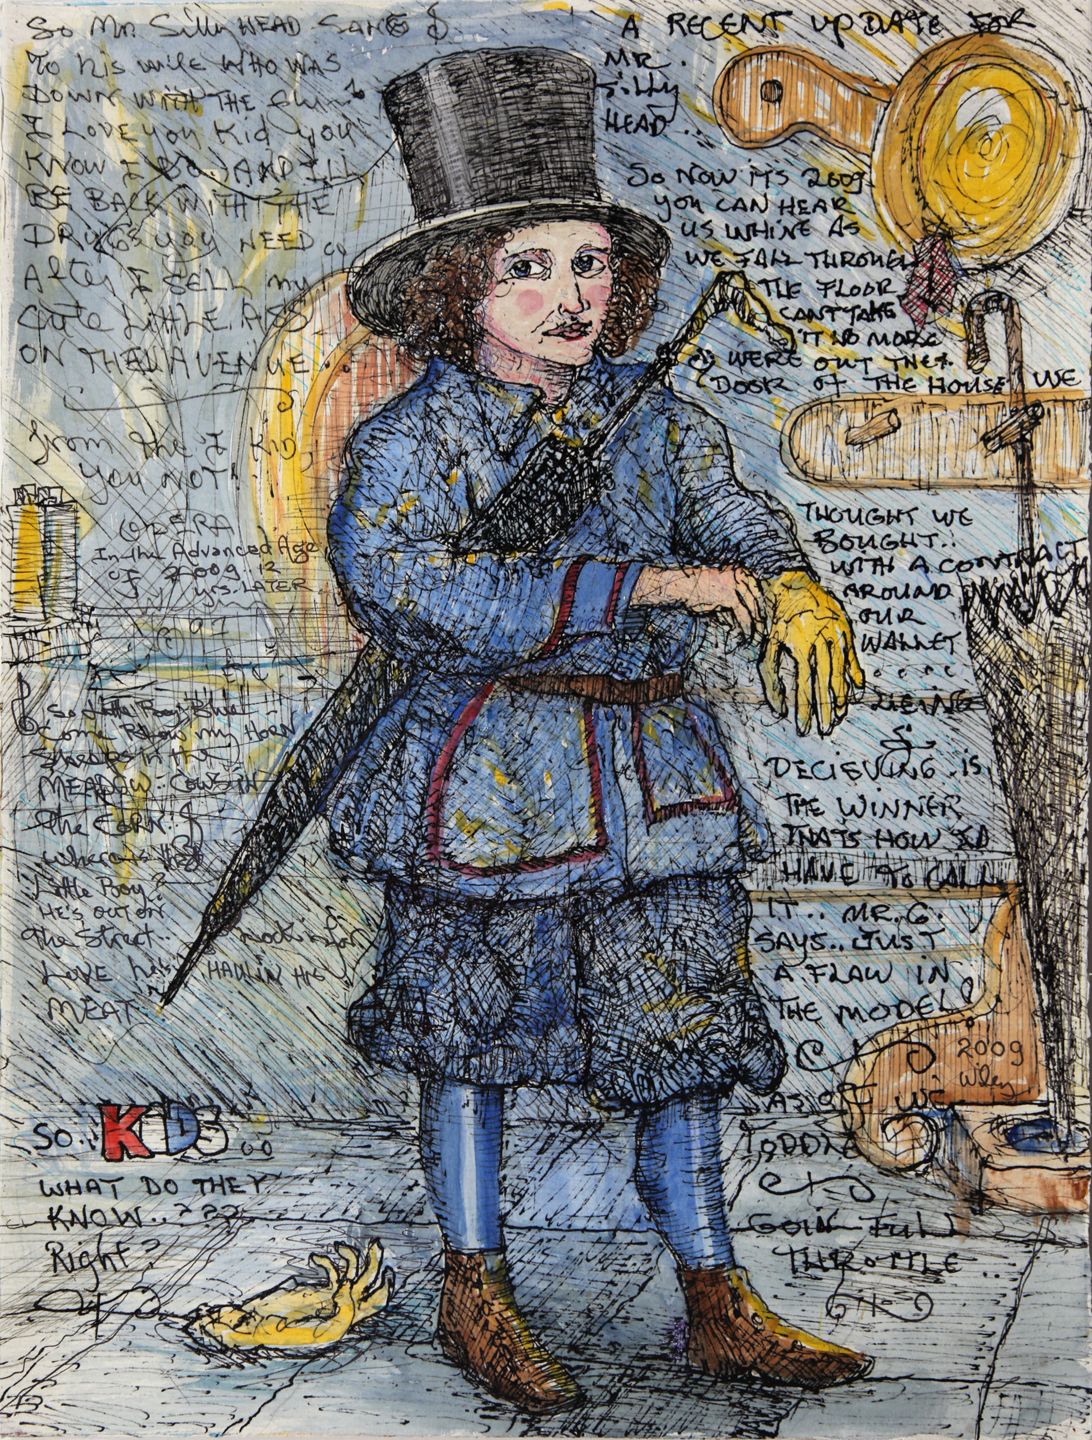 So Mr. SillyHEAD SANG
To his wife WHO WAS
DOWN WITH THE
I LOVE YOU KID YOU
KNOW I DO AND I'LL
BE BACK WITH THE
DRUGS YOU NEED
After I SELL my
CUTE LITTLE ARS
ON THE AVENUE...
from the I Kid
you NOT!
OPERA
In the Advanced Age
of 2009 2
yrs. LATER
ETC
So Little Boy Blue
Come Blow my HORN
Sheep in the
MEADOW.. COWS IN
the CORN. &
where's that
Little Boy?
He's out on
the street..
LOVE HAULIN HIS
MEAT
SO.. KIDS..
WHAT DO THEY
KNOW..???
Right?
A RECENT UPDATE FOR
MR.
Silly
HEAD...
So NOW ITS 2009
YOU CAN HEAR
US WHINE AS
WE FALL THROUGH
THE FLOOR
CANT TAKE
IT NO MORE
& WERE OUT THE
DOOR OF THE HOUSE WE
THOUGHT WE
BOUGHT..
WITH A CONTRACT
AROUND
OUR
WALLET
....
&
DECIEVING IS
THE WINNER
THATS HOW ID
HAVE TO CALL
IT.. MR. G.
SAYS.. JUST
A FLAW IN
THE MODEL
2009
Wiley
AS OFF WE
TODDLE
GOIN FULL
THROTTLE..